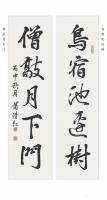 鳥宿池邊樹
僧敲月下門
丙申秋月